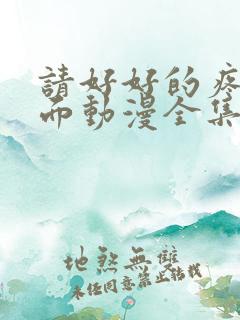 請好好的疼
而動漫全集
地煞無雙
未经同意禁止转载